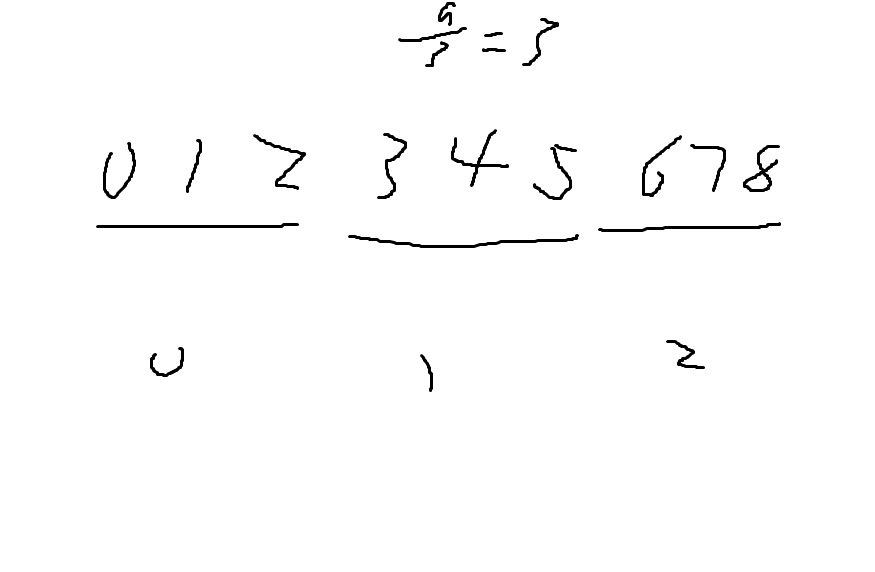 9/3 = 3
0 1 2 3 4 5 6 7 8
0 1 2